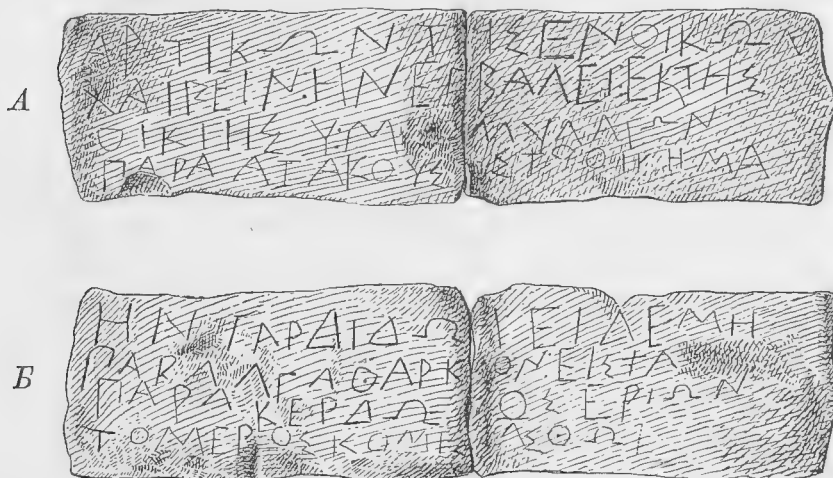 А
ΑΡΤΙΚΩΝΤ ΙΣΕΝΟΙΚΩ
ΧΑΙΡΕΙΝ·ΗΝ ΕΓΒΑΛΕΙΕΚΤΗΣ
ΟΙΚΙΗΣΥΜ ΜΥΛΛΙΩΝ
ΠΑΡΑΑΤΑΚΟΥΣ ΣΤΟΟΙΚΗΜΑ
Б
ΗΝΓΑΡΔΙΔΩ ΙΕΙΔΕΜΗ
ΠΑΡΑΑΓΑΘΑΡΚ ΟΝΕΙΣΤΑ
ΠΑΡΑΚΕΡΔΩ ΟΣΕΡΙΩΝ
ΤΟΜΕΡΟΣΚΟΜΗΣ ΑΣΘΩΙ